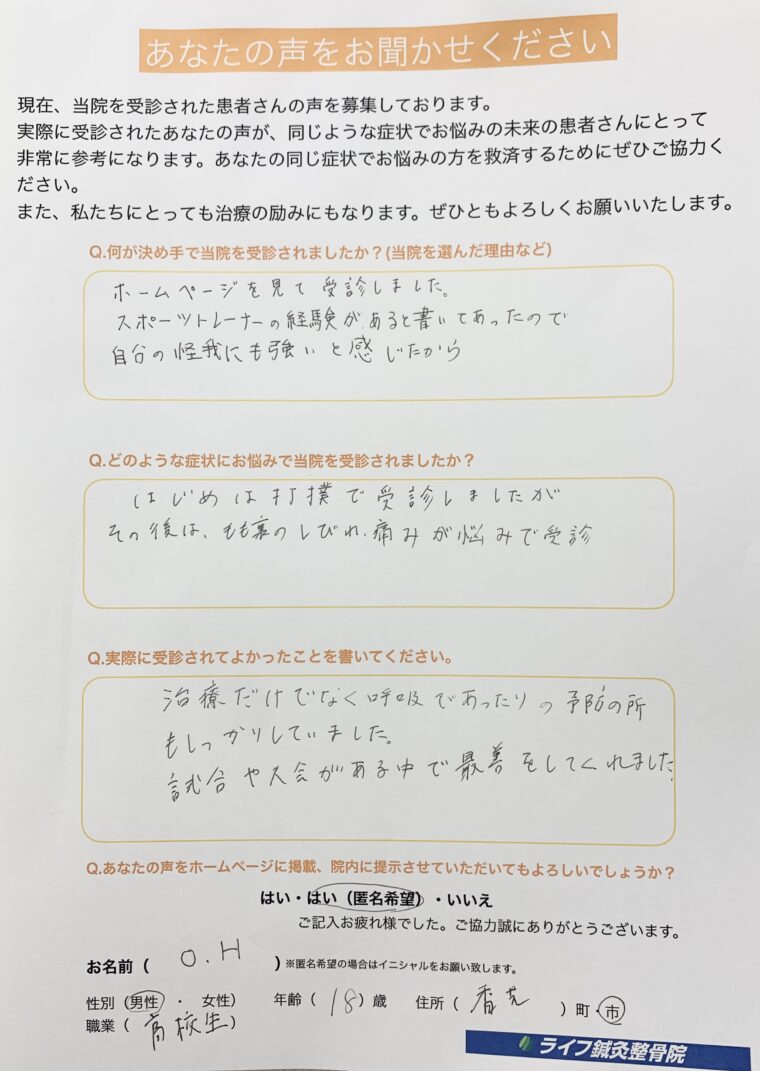 あなたの声をお聞かせください
現在、当院を受診された患者さんの声を募集しております。
実際に受診されたあなたの声が、同じような症状でお悩みの未来の患者さんにとって
非常に参考になります。あなたの同じ症状でお悩みの方を救済するためにぜひご協力く
ださい。
また、私たちにとっても治療の励みにもなります。ぜひともよろしくお願いいたします。
Q.何が決め手で当院を受診されましたか？(当院を選んだ理由など)
ホームページを見て受診しました。
スポーツトレーナーの経験があると書いてあったので
自分の怪我にも強いと感じたから
Q.どのような症状にお悩みで当院を受診されましたか？
はじめは打撲で受診しましたが
その後は、もも裏のしびれ、痛みが悩みで受診
Q.実際に受診されてよかったことを書いてください。
治療だけでなく呼吸であったりの予防の所
もしっかりしていました。
試合や大会がある中で最善をしてくれました。
Q.あなたの声をホームページに掲載、院内に提示させていただいてもよろしいでしょうか？
はい・はい（匿名希望）・いいえ
ご記入お疲れ様でした。ご協力誠にありがとうございます。
お名前（ O.H ）※匿名希望の場合はイニシャルをお願い致します。
性別（男性 ・ 女性） 年齢（ 18 ）歳 住所（ 香芝 ）町・市
職業（ 高校生 ）
ライフ鍼灸整骨院